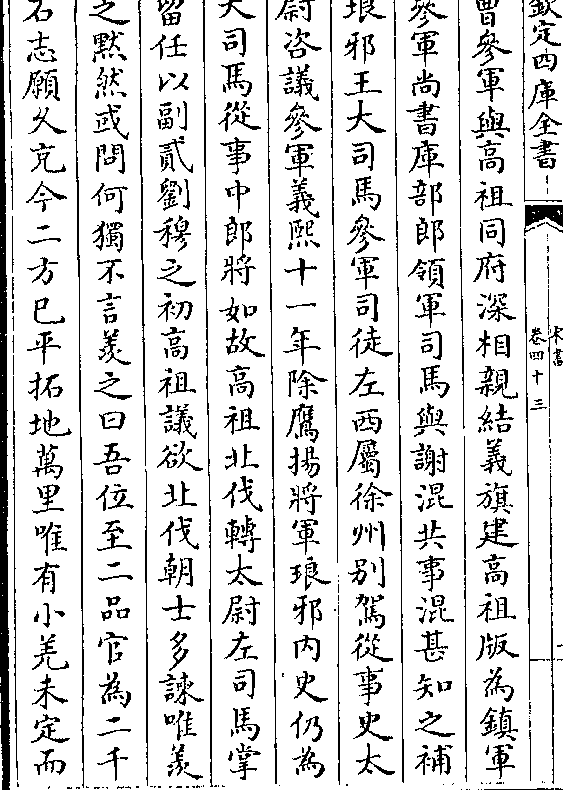 欽定四庫全書
宋書
卷四十三
曹參軍與高祖同府深相親結義旗建高祖版為鎮軍
參軍尚書庫部郎領軍司馬與謝混共事混甚知之補
琅邪王大司馬參軍司徒左西屬徐州别駕從事史太
尉咨議參軍義熙十一年除鷹揚將軍琅邪内史仍為
大司馬從事中郎將如故高祖北伐轉太尉左司馬掌
留任以副貳劉穆之初高祖議欲北伐朝士多諫唯羡
之黙然或問何獨不言羡之曰吾位至二品官為二千
石志願久充今二方已平拓地萬里唯有小羌未定而